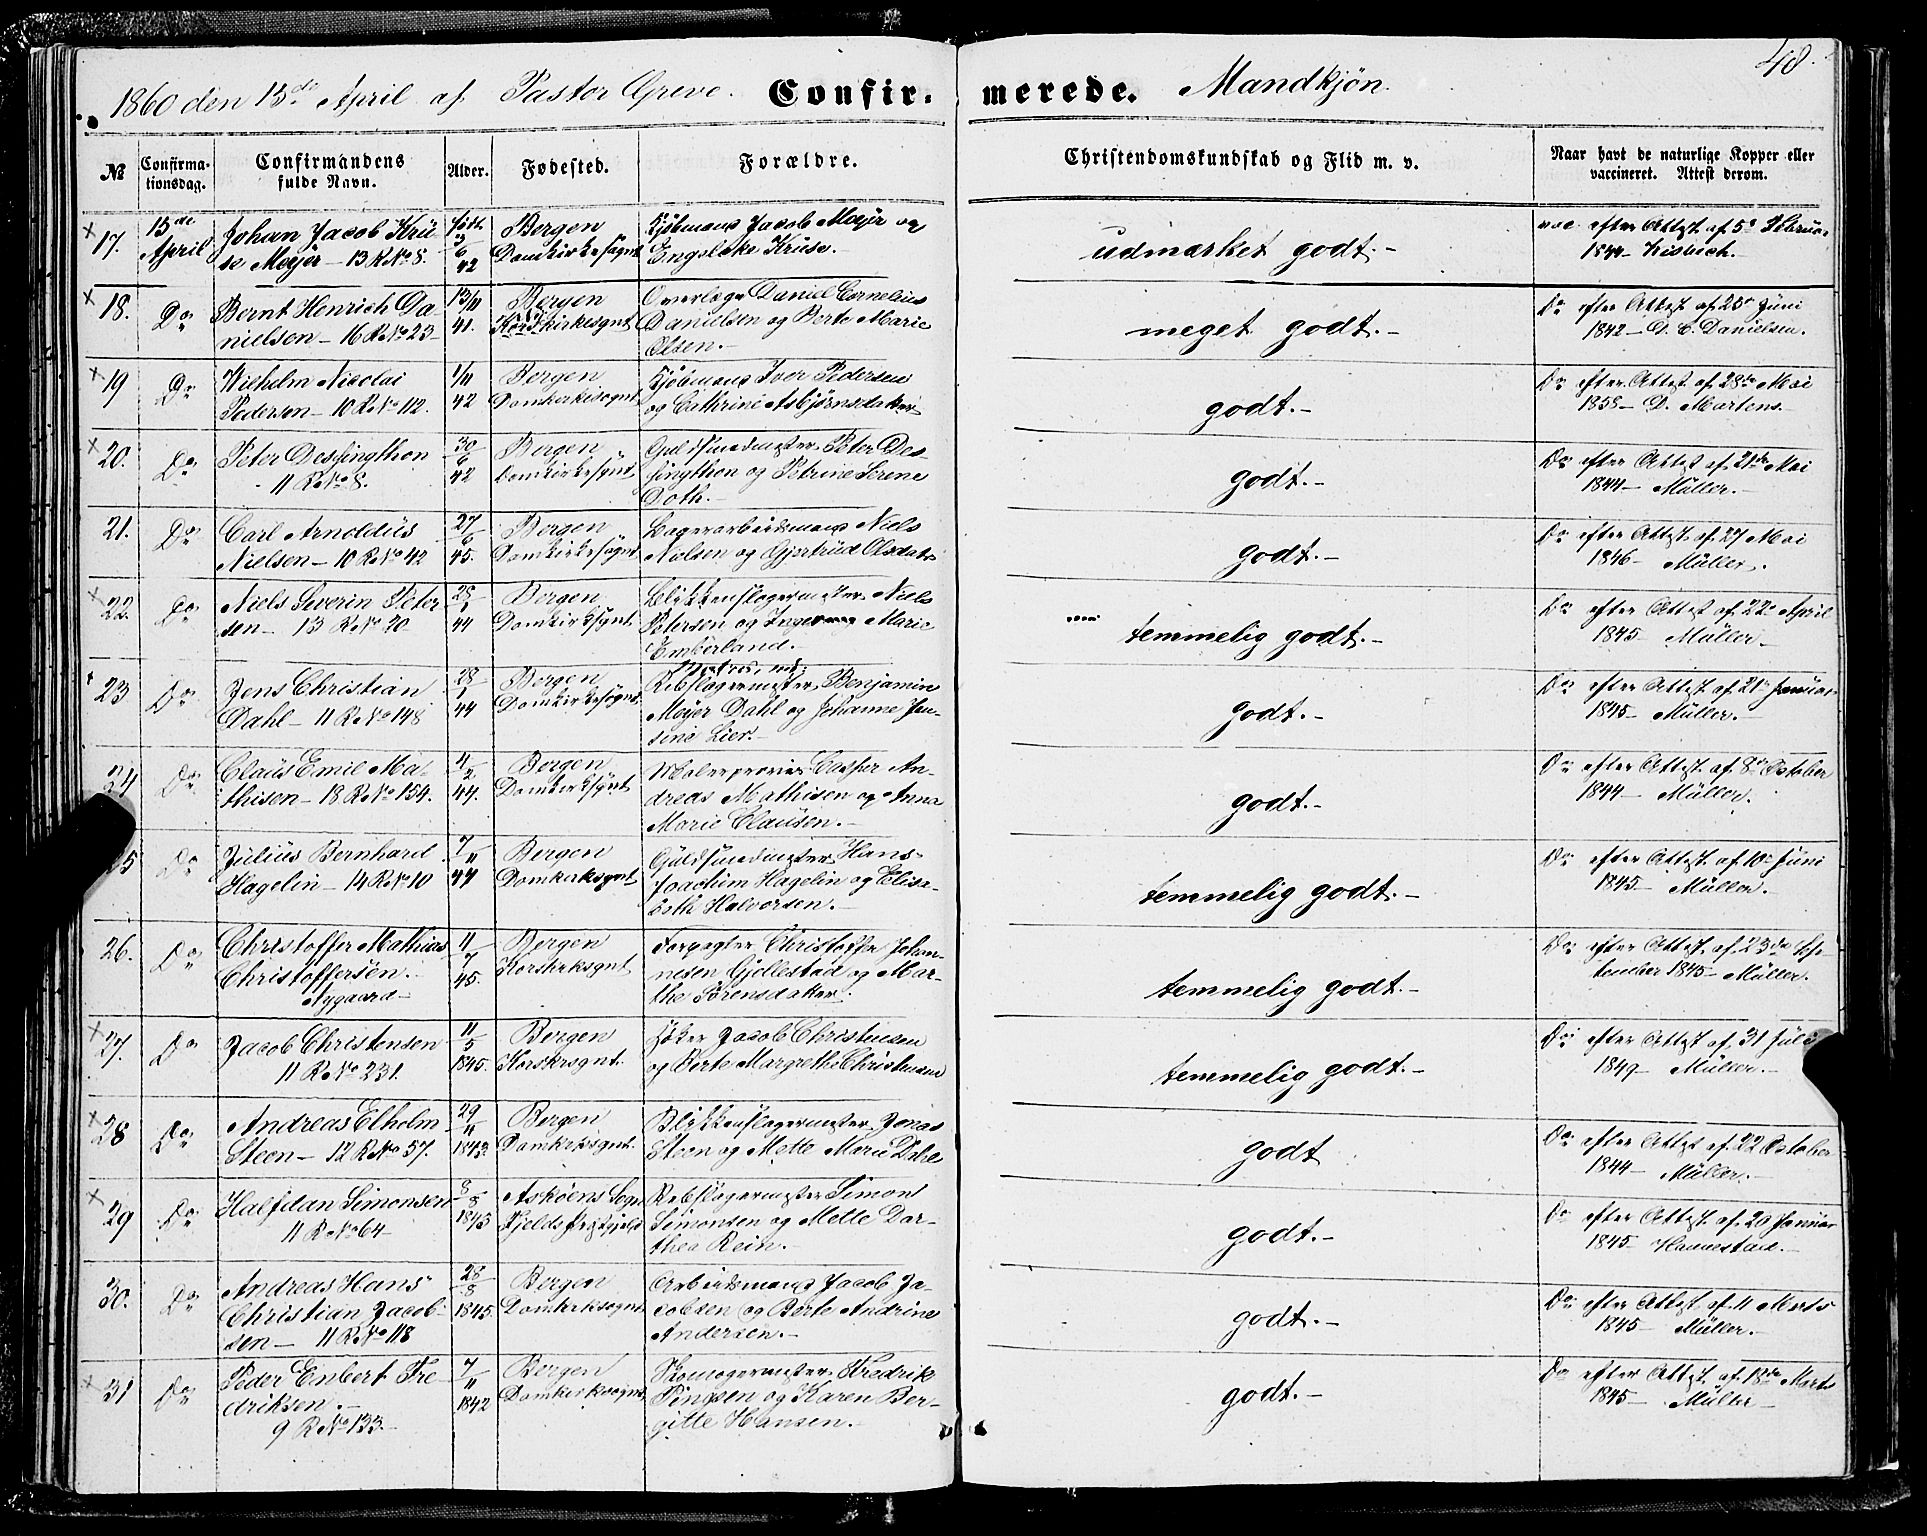 1860 den 15de April af Pastor Greve. Confir- merede. Mandkjön. 48.
№ Confirma-tionsdag. Confirmandens fulde Navn. Alder. Fødested. Forældre. Christendomskundskab og Flid m. v. Naar havt de naturlige Kopper eller vaccineret. Attest derom.
17. 15de April Johan Jacob Krü-
se Meyer - 13 R No 8. født 3/6 42 Bergen Domkirkesognet Kjöbmand Jacob Meyer og
Engelske Kruse. udmærket godt.- vac. efter Attest af 5te Februar
1844 -
18. Do Bernt Henrich Da-
nielsen - 16 R No 23 13/11 41. Bergen Korskirkesognt Overlæge Daniel Cornelius
Danielsen og Berte Marie
Olsen.- meget godt.- Do efter Attest af 25de Juni
1842 - D. C. Danielsen.
19 Do Wilhelm Nicolai
Pedersen - 10 R No 112. 1/11 42 Bergen Domkirkesognt Kjöbmand Iver Pedersen
og Cathrine Asbjörnsdatter godt.- Do efter Attest af 28de Mai
1858 - D. Martens.-
20. Do Peter Dessingthon
11 R No 8. 30/6 42 Bergen Domkirkesognt Guldsmedmester Peter Des-
singthon og Petrine Serene
Doth.- godt.- Do efter Attest af 21de Mai
1844 - Müller.-
21. Do Carl Arnoldus
Nielsen - 10 R No 42 27/6 45. Bergen Domkirkesognt Lagerarbeidsmand Niels
Nielsen og Gjertrud Olsdatr godt.- Do efter Attest af 27 Mai
1846 - Müller.
22. Do Niels Severin Peter
sen - 13 R No 20 28/1 44 Bergen Domkirksgnt. Blikkenslagermester Niels
Petersen og Inger Marie
Emberland. temmelig godt.- Do efter Attest af 22de April
1845 - Müller.-
23 Do Jens Christian
Dahl - 11 R No 148 28/1 44 Bergen Domkirkesognt. Rebslagermester Benjamin
Meyer Dahl og Johanne Jen-
sine Lier.- godt.- Do efter Attest af 21de Januar
1845 - Müller.-
24 Do Claus Emil Ma-
thisen - 18 R No 154. 4/2 44. Bergen Domkirksgnt Malersvend Casper An-
dreas Mathisen og Anna
Marie Clausen.- godt.- Do efter Attest af 8de October
1844 - Müller.
25 Do Julius Bernhard
Hagelin - 14 R No 10 7/11 44 Bergen Domkirksgnt Guldsmedmester Hans
Joachim Hagelin og Elisa-
beth Halvorsen.- temmelig godt.- Do efter Attest af 10de Juni
1845 - Müller.
26. Do Christoffer Mathias
Christoffersen.
Nygaard - 11/7 45. Bergen Korskrksgnt Forpagter Christoffer Johan-
nesen Gjellestad og Mar-
the Sörensdatter. temmelig godt.- Do efter Attest af 23de Sep-
tember 1845 - Müller.
27. Do Jacob Christensen
11 R No 231. 11/5 1845. Bergen Korskrsgnt. Höker Jacob Christensen
og Berte Margrethe Christensen temmelig godt.- Do efter Attest af 31 Juli
1849 - Müller.-
28 Do Andreas Elholm
Steen - 12 R No 57. 29/11 1843 Bergen Domkrksgnt. Blikkenslagermester Jonas
Steen og Mette Marie Dahl godt Do efter Attest af 22 October
1844 - Müller.-
29 Do Halfdan Simonsen
11 R No 64 - 8/8 1843 Askøens Sogn Fjelds Præstegjeld Rebslagermester Simon
Simonsen og Mette Dor-
thea Rein.- godt.- Do efter Attest af 29 Januar
1845 -
30. Do Andreas Hans
Christian Jacob-
sen - 11 R No 118 28/8 1845. Bergen Domkrksognt. Arbeidsmand Jacob Ja-
cobsen og Berte Andrine
Andersen.- godt.- Do efter Attest af 11 Marts
1845 - Müller.-
31 Do Peder Enbert Fre
driksen.-
9 R No 133. 7/11 1842 Bergen Domkirkesognt Skomagermester Fredrik
og Karen Ber-
gitte Hansen.- godt.- Do efter Attest af 18de Marts
1845 - Müller -